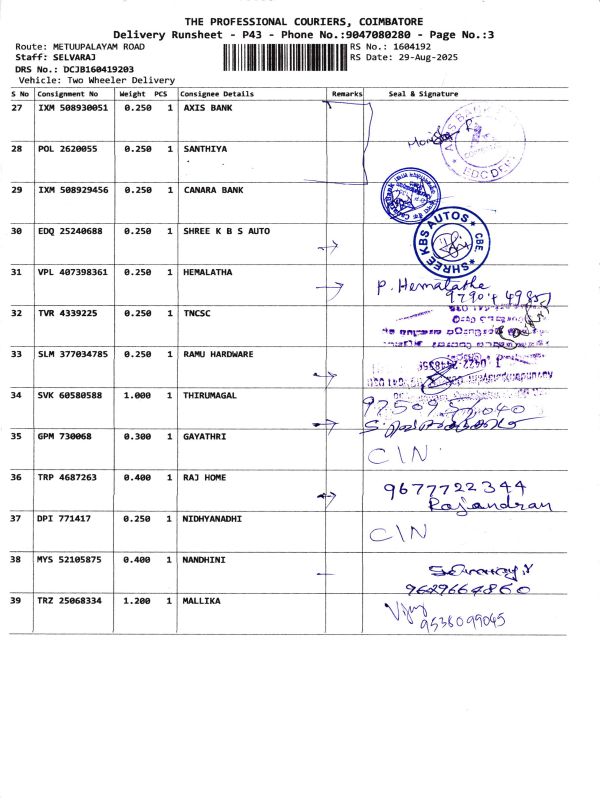 THE PROFESSIONAL COURIERS, COIMBATORE
Delivery Runsheet - P43 - Phone No.:9047080280 - Page No.:3
Route: METUUPALAYAM ROAD RS No.: 1604192
Staff: SELVARAJ RS Date: 29-Aug-2025
DRS No.: DCJB160419203
Vehicle: Two Wheeler Delivery
S No Consignment No Weight PCS Consignee Details Remarks Seal & Signature
27 IXM 508930051 0.250 1 AXIS BANK
28 POL 2620055 0.250 1 SANTHIYA
29 IXM 508929456 0.250 1 CANARA BANK
30 EDQ 25240688 0.250 1 SHREE K B S AUTO
SHREE KBS AUTOS CBE
31 VPL 407398361 0.250 1 HEMALATHA
P. Hemalathe
32 TVR 4339225 0.250 1 TNCSC
33 SLM 377034785 0.250 1 RAMU HARDWARE
34 SVK 60580588 1.000 1 THIRUMAGAL
35 GPM 730068 0.300 1 GAYATHRI
C\N
36 TRP 4687263 0.400 1 RAJ HOME
9677722344
Rajandran
37 DPI 771417 0.250 1 NIDHYANADHI
C\N
38 MYS 52105875 0.400 1 NANDHINI
9629664860
39 TRZ 25068334 1.200 1 MALLIKA
Vijay
9538099045